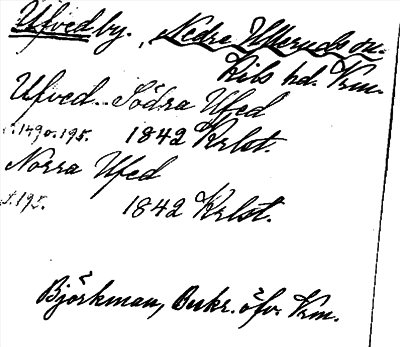 Ufved by. , Nedre Ulleruds sn.
Kils hd. Vrm.
Ufved.. Södra Ufed
s. 149 o. 195. 1842 Krlst.
Norra Ufed
s. 195. 1842 Krlst.
Björkman, Beskr. öfv. Vrm.